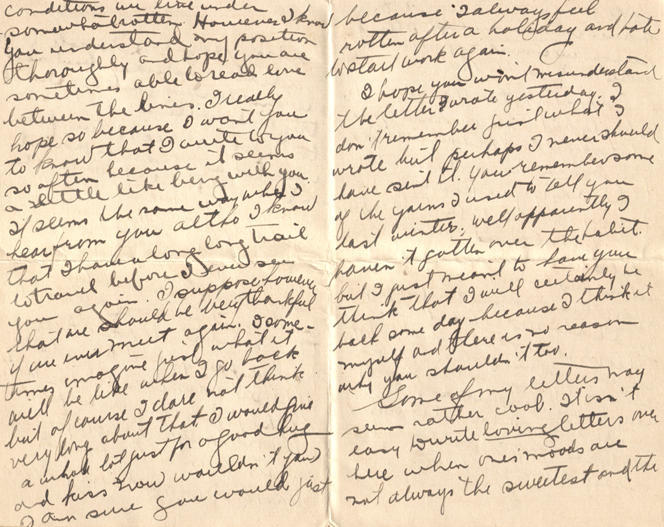 conditions we live under
somewhat rotten. However I know
you understand my position
thoroughly and hope you are
sometimes able to read love
between the lines. I really
hope so because I want you
to know that I write to you
so often because it seems
a little like being with you.
it seems the same way when I
hear from you altho I know
that I have a long long trail
to travel before I ever see
you again. I suppose however
that we should be very thankful
if we ever meet again. I some-
times imagine just what it
will be like when I go back
but of course I dare not think
very long about that I would give
a whole lot just for a good hug
and kiss now wouldn't you
I am sure you would just
because I always feel
rotten after a holiday and hate
to start work again.
I hope you won't misunderstand
the letter I wrote yesterday. I
don't remember just what I
wrote but perhaps I never should
have sent it. You remember some
of the yarns I used to tell you
last winter; well apparently I
haven't gotten over the habit.
but I just meant to have you
think that I will certainly be
back some day because I think it
myself and there is no reason
why you shouldn't too.
Some of my letters may
seem rather cool. It isn't
easy to write loving letters over
here when ones moods are
not always the sweetest and the